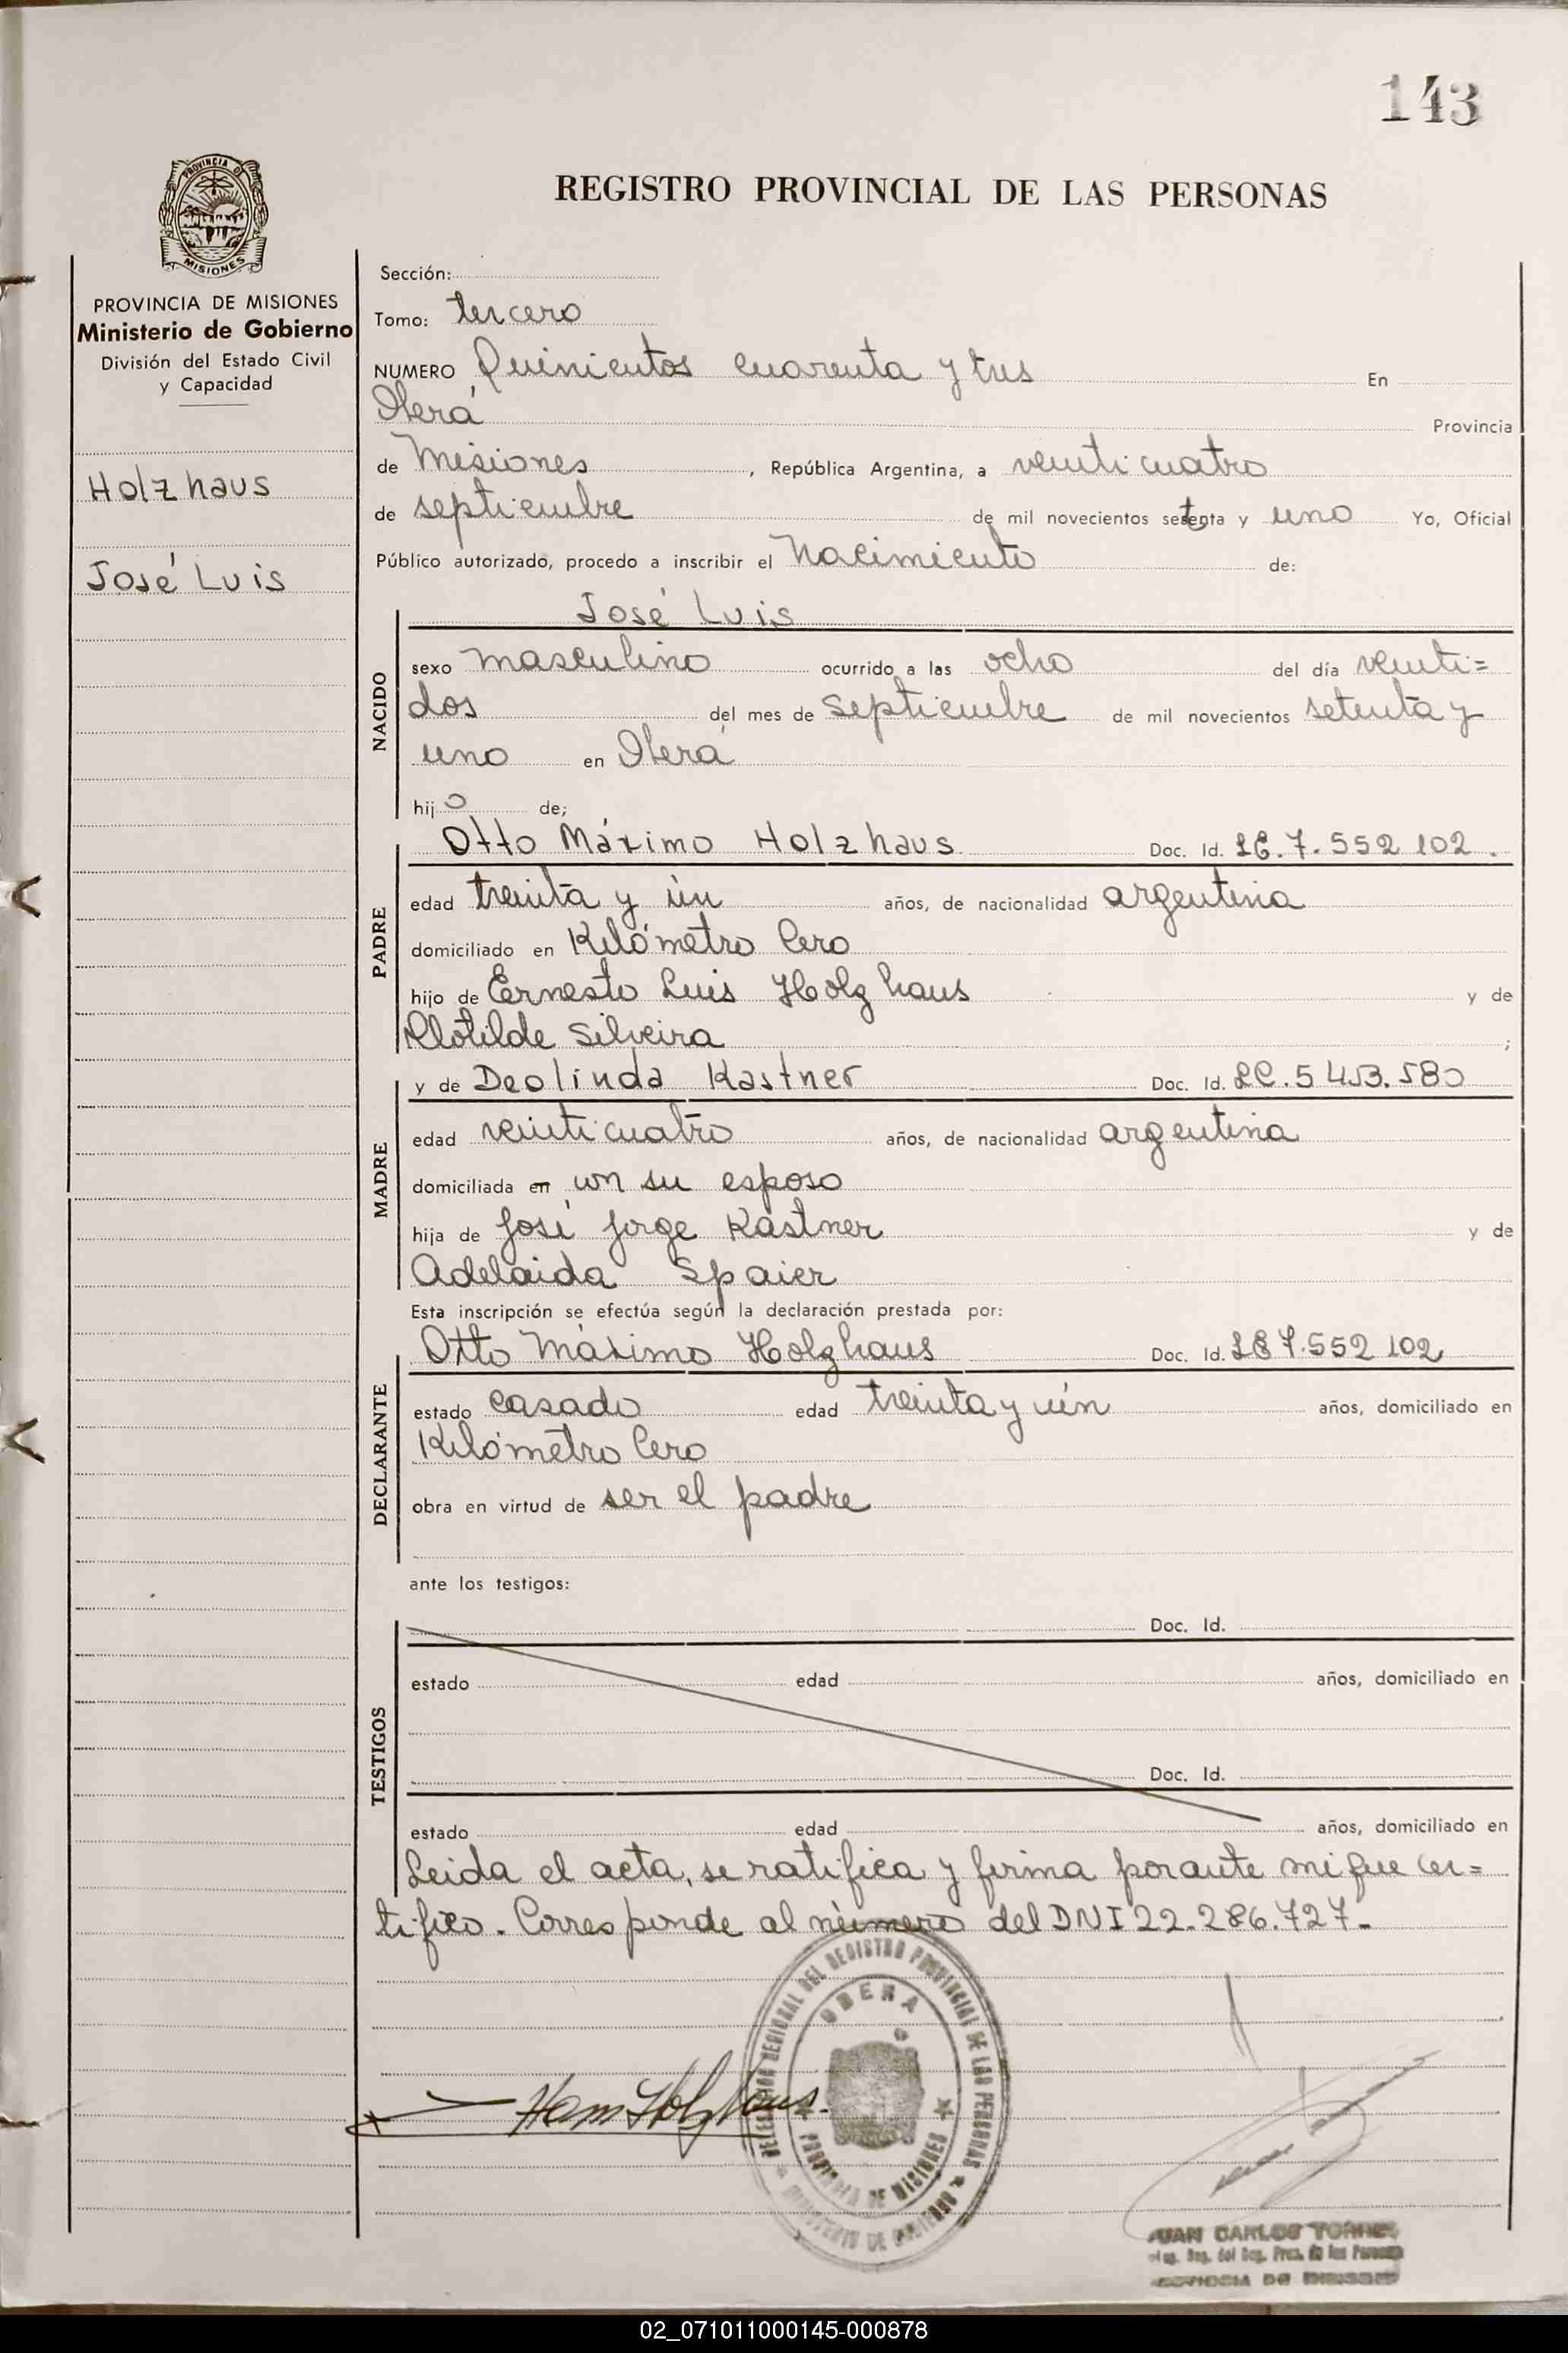 143
PROVINCIA DE
MISIONES
REGISTRO PROVINCIAL DE LAS PERSONAS
PROVINCIA DE MISIONES
Ministerio de Gobierno
División del Estado Civil
y Capacidad
Holzhaus
José Luis
Sección:
Tomo: tercero
NUMERO Quinientos cuarenta y tres En
Oberá Provincia
de Misiones, República Argentina, a veinticuatro
de septiembre de mil novecientos setenta y uno Yo, Oficial
Público autorizado, procedo a inscribir el Nacimiento de:
NACIDO
José Luis
sexo masculino ocurrido a las ocho del día veinti=
dos del mes de septiembre de mil novecientos setenta y
uno en Oberá
hijo de;
PADRE
Otto Máximo Holzhaus Doc. Id. LE. 7.552 102.
edad treinta y ún años, de nacionalidad argentina
domiciliado en Kilómetro Cero
hijo de Ernesto Luis Holzhaus y de
Clotilde Silveira ;
MADRE
y de Deolinda Kastner Doc. Id. LC. 5 453.580
edad veinticuatro años, de nacionalidad argentina
domiciliada en con su esposo
hija de José Jorge Kastner y de
Adelaida Spaier
Esta inscripción se efectúa según la declaración prestada por:
DECLARANTE
Otto Máximo Holzhaus Doc. Id. LE 7.552 102
estado casado edad treinta y ún años, domiciliado en
Kilómetro Cero
obra en virtud de ser el padre
ante los testigos:
TESTIGOS
Doc. Id.
estado edad años, domiciliado en
Doc. Id.
estado edad años, domiciliado en
Leida el acta, se ratifica y firma por ante mi que cer=
tifico. Corresponde al número del DNI 22.286.727.
DELEGACION REGIONAL DEL REGISTRO PROVINCIAL DE LAS PERSONAS
OBERA
PROVINCIA DE MISIONES
MINISTERIO DE GOBIERNO
Holzhaus
JUAN CARLOS TORRES
del Reg. Prov. de las Personas
PROVINCIA DE MISIONES
02_071011000145-000878